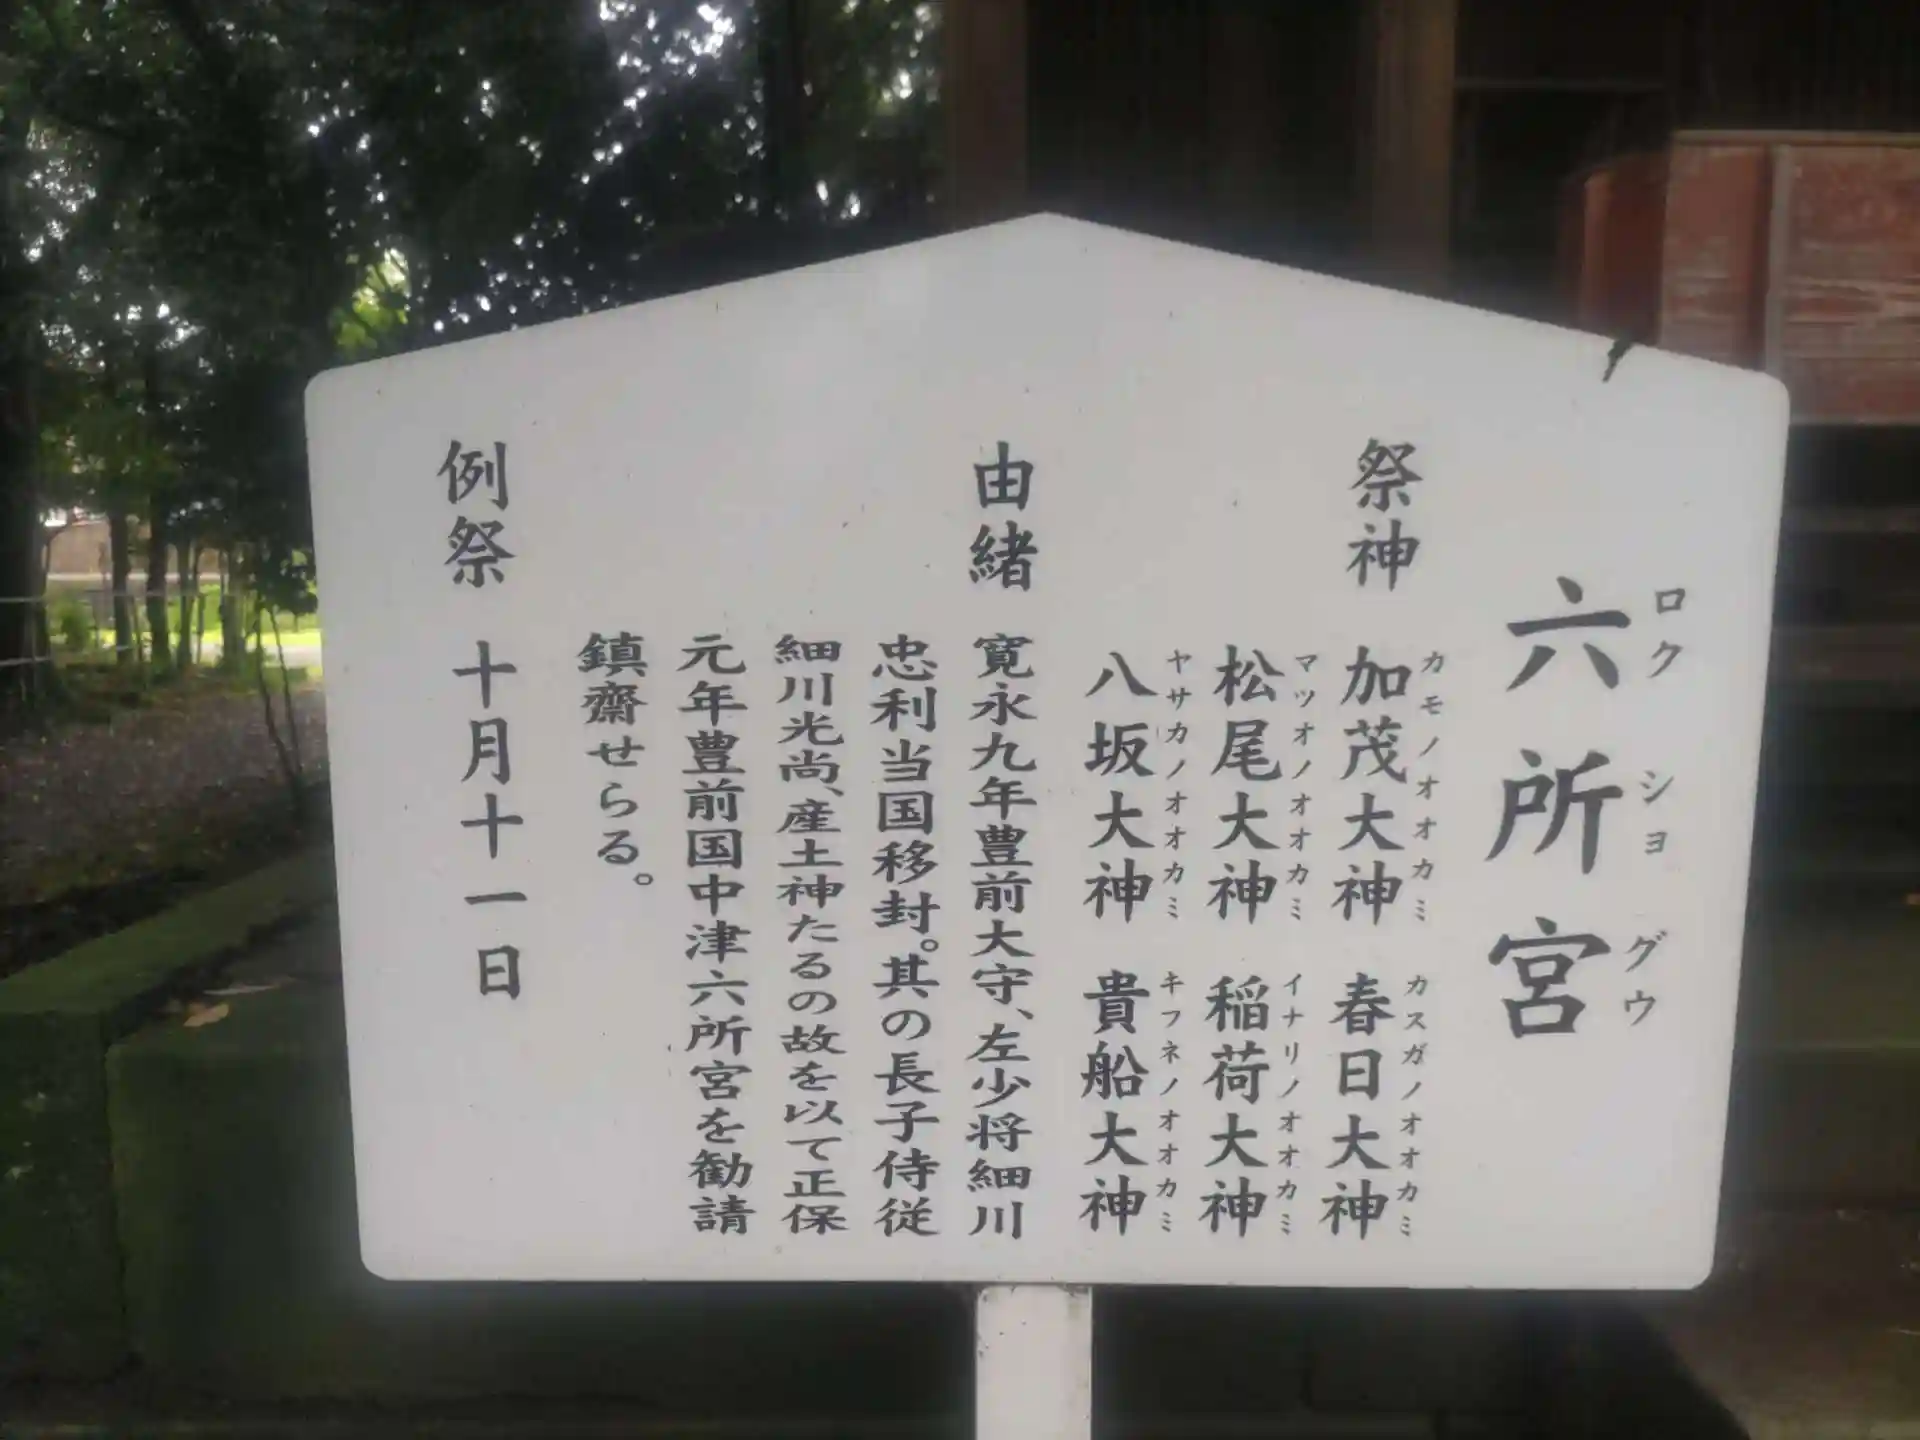 六所宮
ロクショグウ
祭神
加茂大神 春日大神
カモノオオカミ カスガノオオカミ
松尾大神 稲荷大神
マツオノオオカミ イナリノオオカミ
八坂大神 貴船大神
ヤサカノオオカミ キフネノオオカミ
由緒
寛永九年豊前大守、左少将細川
忠利当国移封。其の長子侍従
細川光尚、産土神たるの故を以て正保
元年豊前国中津六所宮を勧請
鎮齋せらる。
例祭 十月十一日